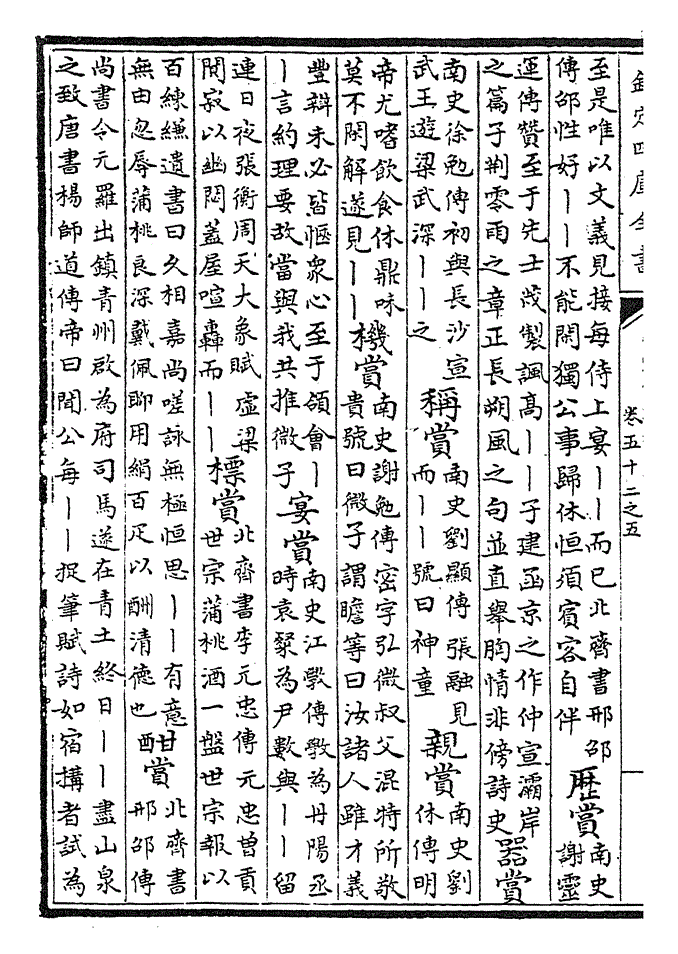 欽定四庫全書
卷五十二之五
至是唯以文義見接每侍上宴丨丨而已北齊書邢邵
傳邵性好丨丨不能閑獨公事歸休恒須賓客自伴
歴賞
南史
謝靈
運傳贊至于先士茂製諷髙丨丨子建函京之作仲宣灞岸
之篇子荆零雨之章正長朔風之句並直舉胸情非傍詩史
器賞
南史徐勉傳初與長沙宣
武王遊梁武深丨丨之
稱賞
南史劉顯傳張融見
而丨丨號曰神童
親賞
南史劉
休傳明
帝尤嗜飲食休鼎味
莫不閑解遂見丨丨
機賞
南史謝勉傳密字弘微叔父混特所敬
貴號曰微子謂瞻等曰汝諸人雖才義
豐辯未必皆愜衆心至于領會丨
丨言約理要故當與我共推微子
宴賞
南史江斆傳斆為丹陽丞
時袁粲為尹數與丨丨留
連日夜張衡周天大象賦 虛梁
閴寂以幽悶蓋屋喧轟而丨丨
標賞
北齊書李元忠傳元忠曽貢
世宗蒲桃酒一盤世宗報以
百練縑遺書曰久相嘉尚嗟詠無極恒思丨丨有意
無由忽辱蒲桃良深戴佩聊用絹百疋以酬清德也
酣賞
北齊書
邢邵傳
尚書令元羅出鎮青州啟為府司馬遂在青土終日丨丨盡山泉
之致唐書楊師道傳帝曰聞公每丨丨捉筆賦詩如宿搆者試為